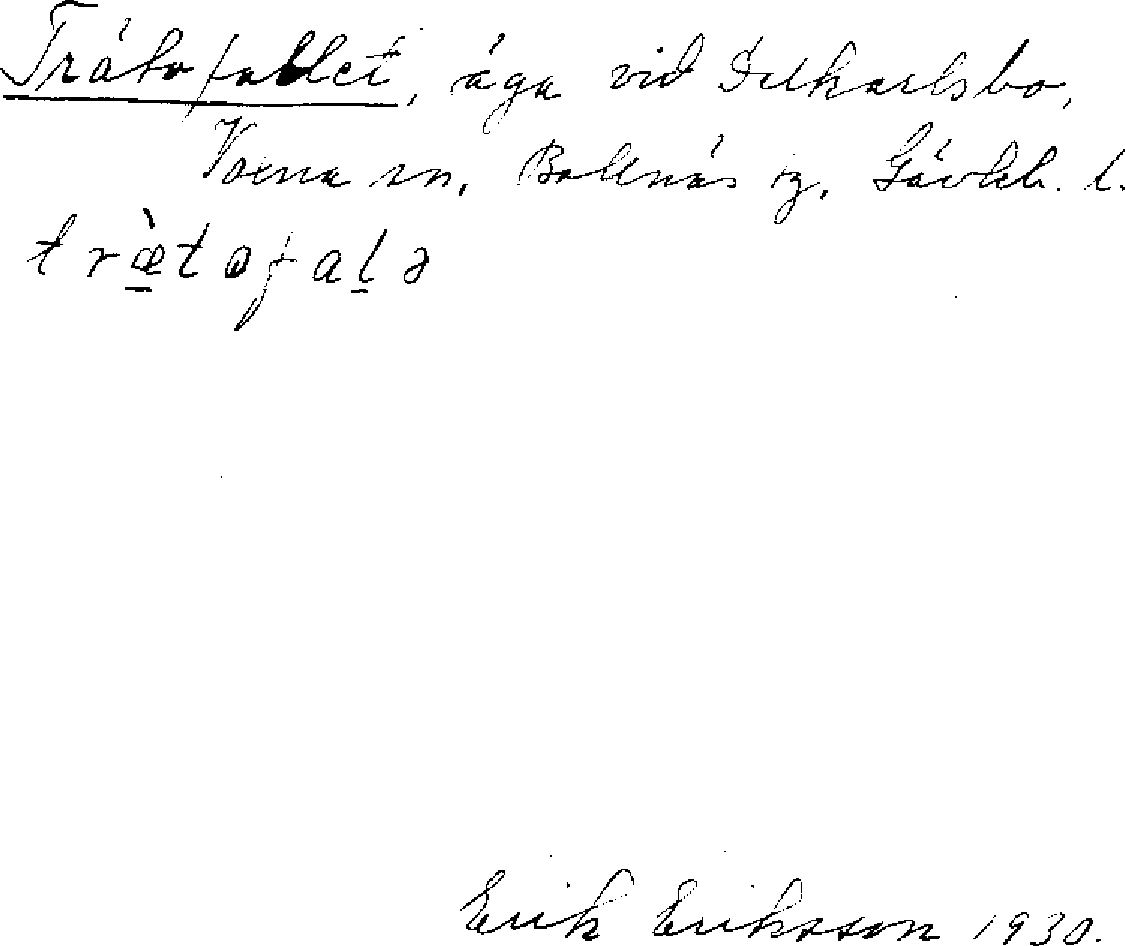 Trätofallet, äga vid Dalkarlsbo,
Voxna sn, Bollnäs tg, Gävleb. l.
træ̠̀tofal̠ə
Erik Eriksson 1930.